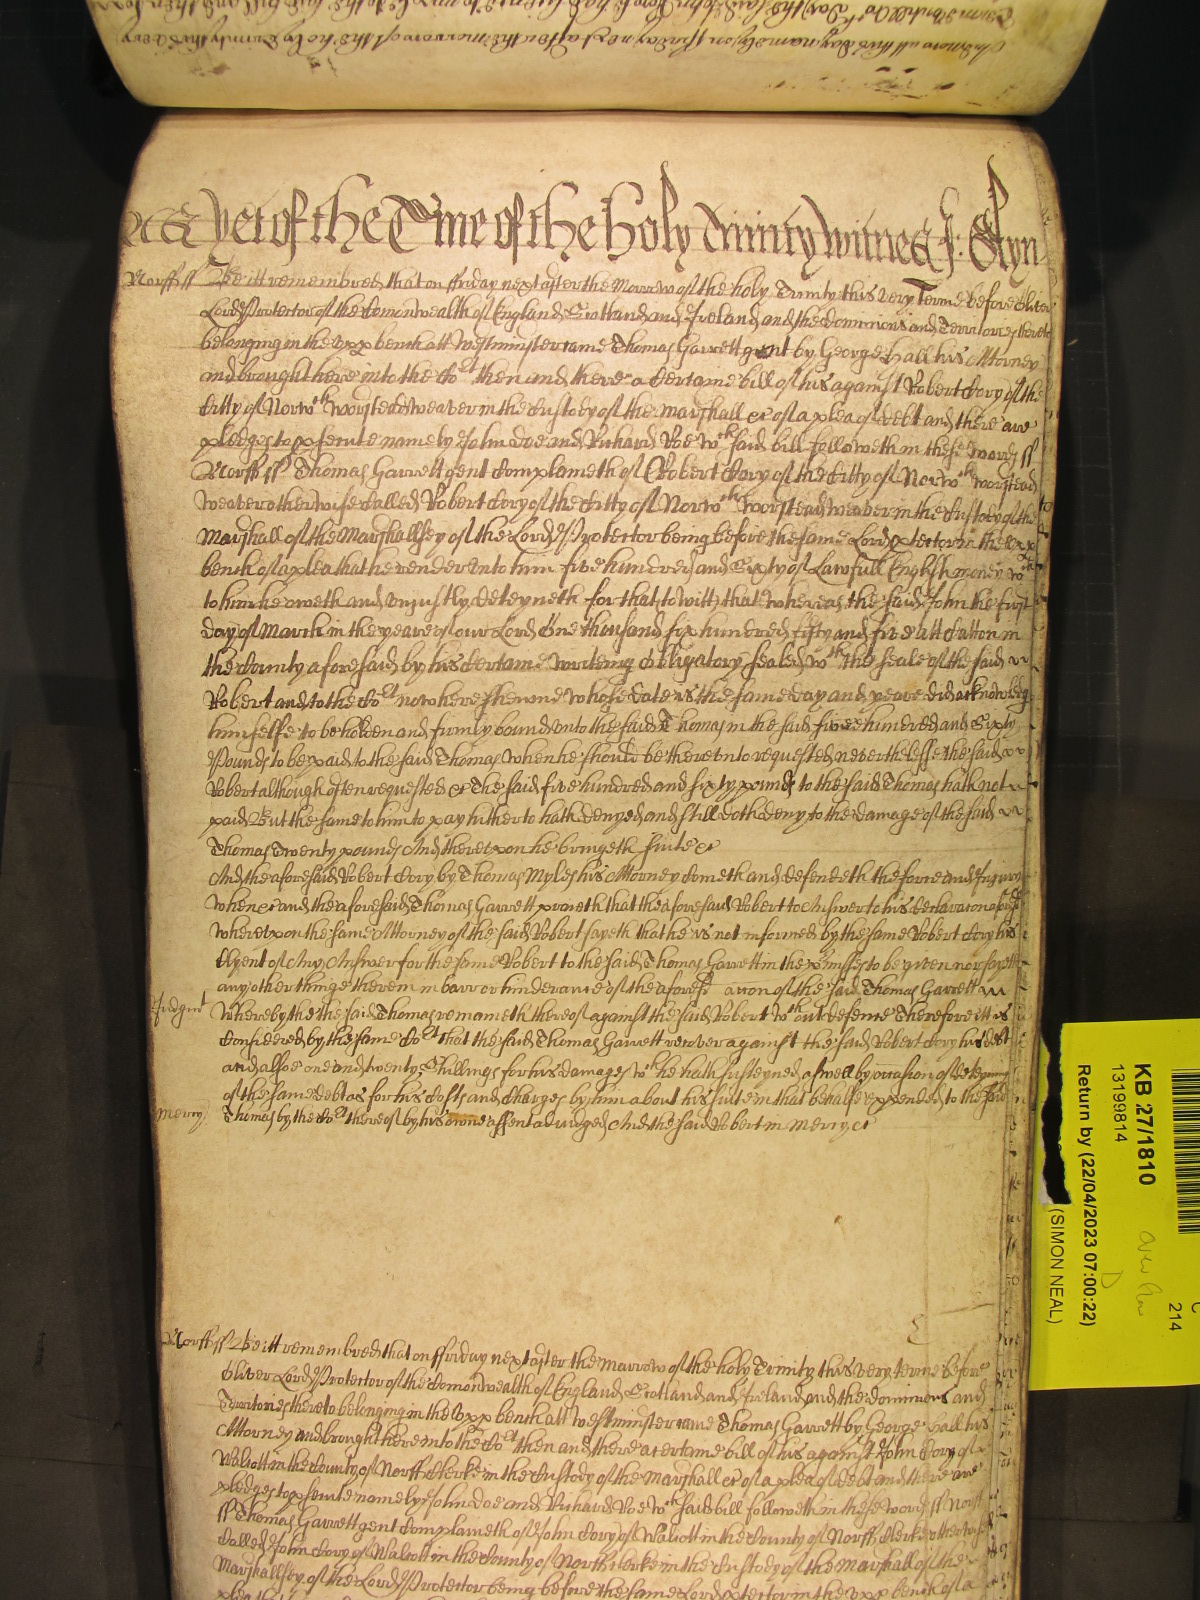 As yet of the Terme of the holy Trinity Witnes J: Glyn
Norff ss Be itt remembred that on ffriday next after the Morrow of the holy Trinity this very Terme before Oliver
Lord Protector of the Comonwealth of England Scotland and Ireland and the dominions and Territores thereto
belonging in the upp bench att Westminster came Thomas Garrett gent by George Hall his Attorney
and brought here into the Cort then and there a Certaine bill of his against Robert Cory of the
Citty of Norwch Worstead weaver in the Custody of the Marshall &c of a plea of debt and there are
pledges to p secute namely John Doe and Richard Roe wch said bill followeth in these words ss
Norff ss Thomas Garrett gent Complaineth of Robert Cory of the Citty of Norwch Worstead
weaver otherwise Called Robert Cory of the Citty of Norwch Worstead weaver in the Custody of the
Marshall of the Marshallsey of the Lord Protector being before the same Lord p tector in the upp
bench of a plea that he render unto him five hundred and Sixty of Lawfull English money wch
to him he oweth and unjustly deteyneth for that to witt that whereas the said John the first
day of March in the yeare of our Lord One thousand six hundred fifty and five att Catton in
the County aforesaid by his Certaine writeing Obligatory sealed wth the seale of the said
Robert and to the Cort now here shewne whose date is the same day and yeare did acknowledg
himselfe to be holden and firmly bound unto the said Thomas in the said five hundred and Sixty
Pounds to be paid to the said Thomas when he should be thereunto requested nevertheless the said
Robert although often requested &c The said five hundred and sixty pounds to the said Thomas hath not
paid But the same to him to pay hitherto hath denyed and still doth deny to the damage of the said
Thomas Twenty pounds And thereupon he bringeth suite &c
And the aforesaid Robert Cory by Thomas Myles his Attorney Cometh and defendeth the force and Injury
when &c and the aforesaid Thomas Garrett prayeth that the aforesaid Robert to Answer to his declaracon aforesd
whereupon the same Attorney of the said Robert sayeth that he is not informed by the same Robert Cory his
Clyent of Any Answer for the same Robert to the said Thomas Garrett in the p misses to be given nor sayeth
any other thinge therein in barr or hinderance of the aforesd accon of the said Thomas Garrett
Judgmt Whereby the the said Thomas remaineth thereof against the said Robert wthout defence Therefore itt is
Considered by the same Cort that the said Thomas Garrett recover against the said Robert Cory his debt
and alsoe one and twenty Shillings for his damages wch he hath susteyned aswell by occasion of deteyning
of the same debt as for his Costs and Charges by him about his suite in that behalfe expended to the said
mercy Thomas by the Cort thereof by his owne assent adiudged And the said Robert in mercy &c
Norff ss Be itt remembred that on ffriday next after the marrow of the holy Trinity this very terme before
Oliver Lord Protector of the Comonwealth of England Scotland and Ireland and the dominions and
Territories thereto belonging in the upp bench att Westminster came Thomas Garrett by George Hall his
Attorney and brought here into the Cort then and there a certaine bill of his against John Cory of
Walcott in the County of Norff Clerke in the Custody of the Marshall &c of a plea of debt and there are
pledges to p secute namely John Doe and Richard Roe wch said bill followeth in these words ss Norff
ss Thomas Garrett gent Complaineth of John Cory of Walcott in the County of Norff Clerke otherwise
Called John Cory of Walcott in the County of Norff Clerke in the Custody of the Marshall of the
Marshallsey of the Lord Protector being before the same Lord p tector in the upp bench of a
KB 27/1810
13199814
Return by (22/04/2023 07:00:22)
(SIMON NEAL)
214